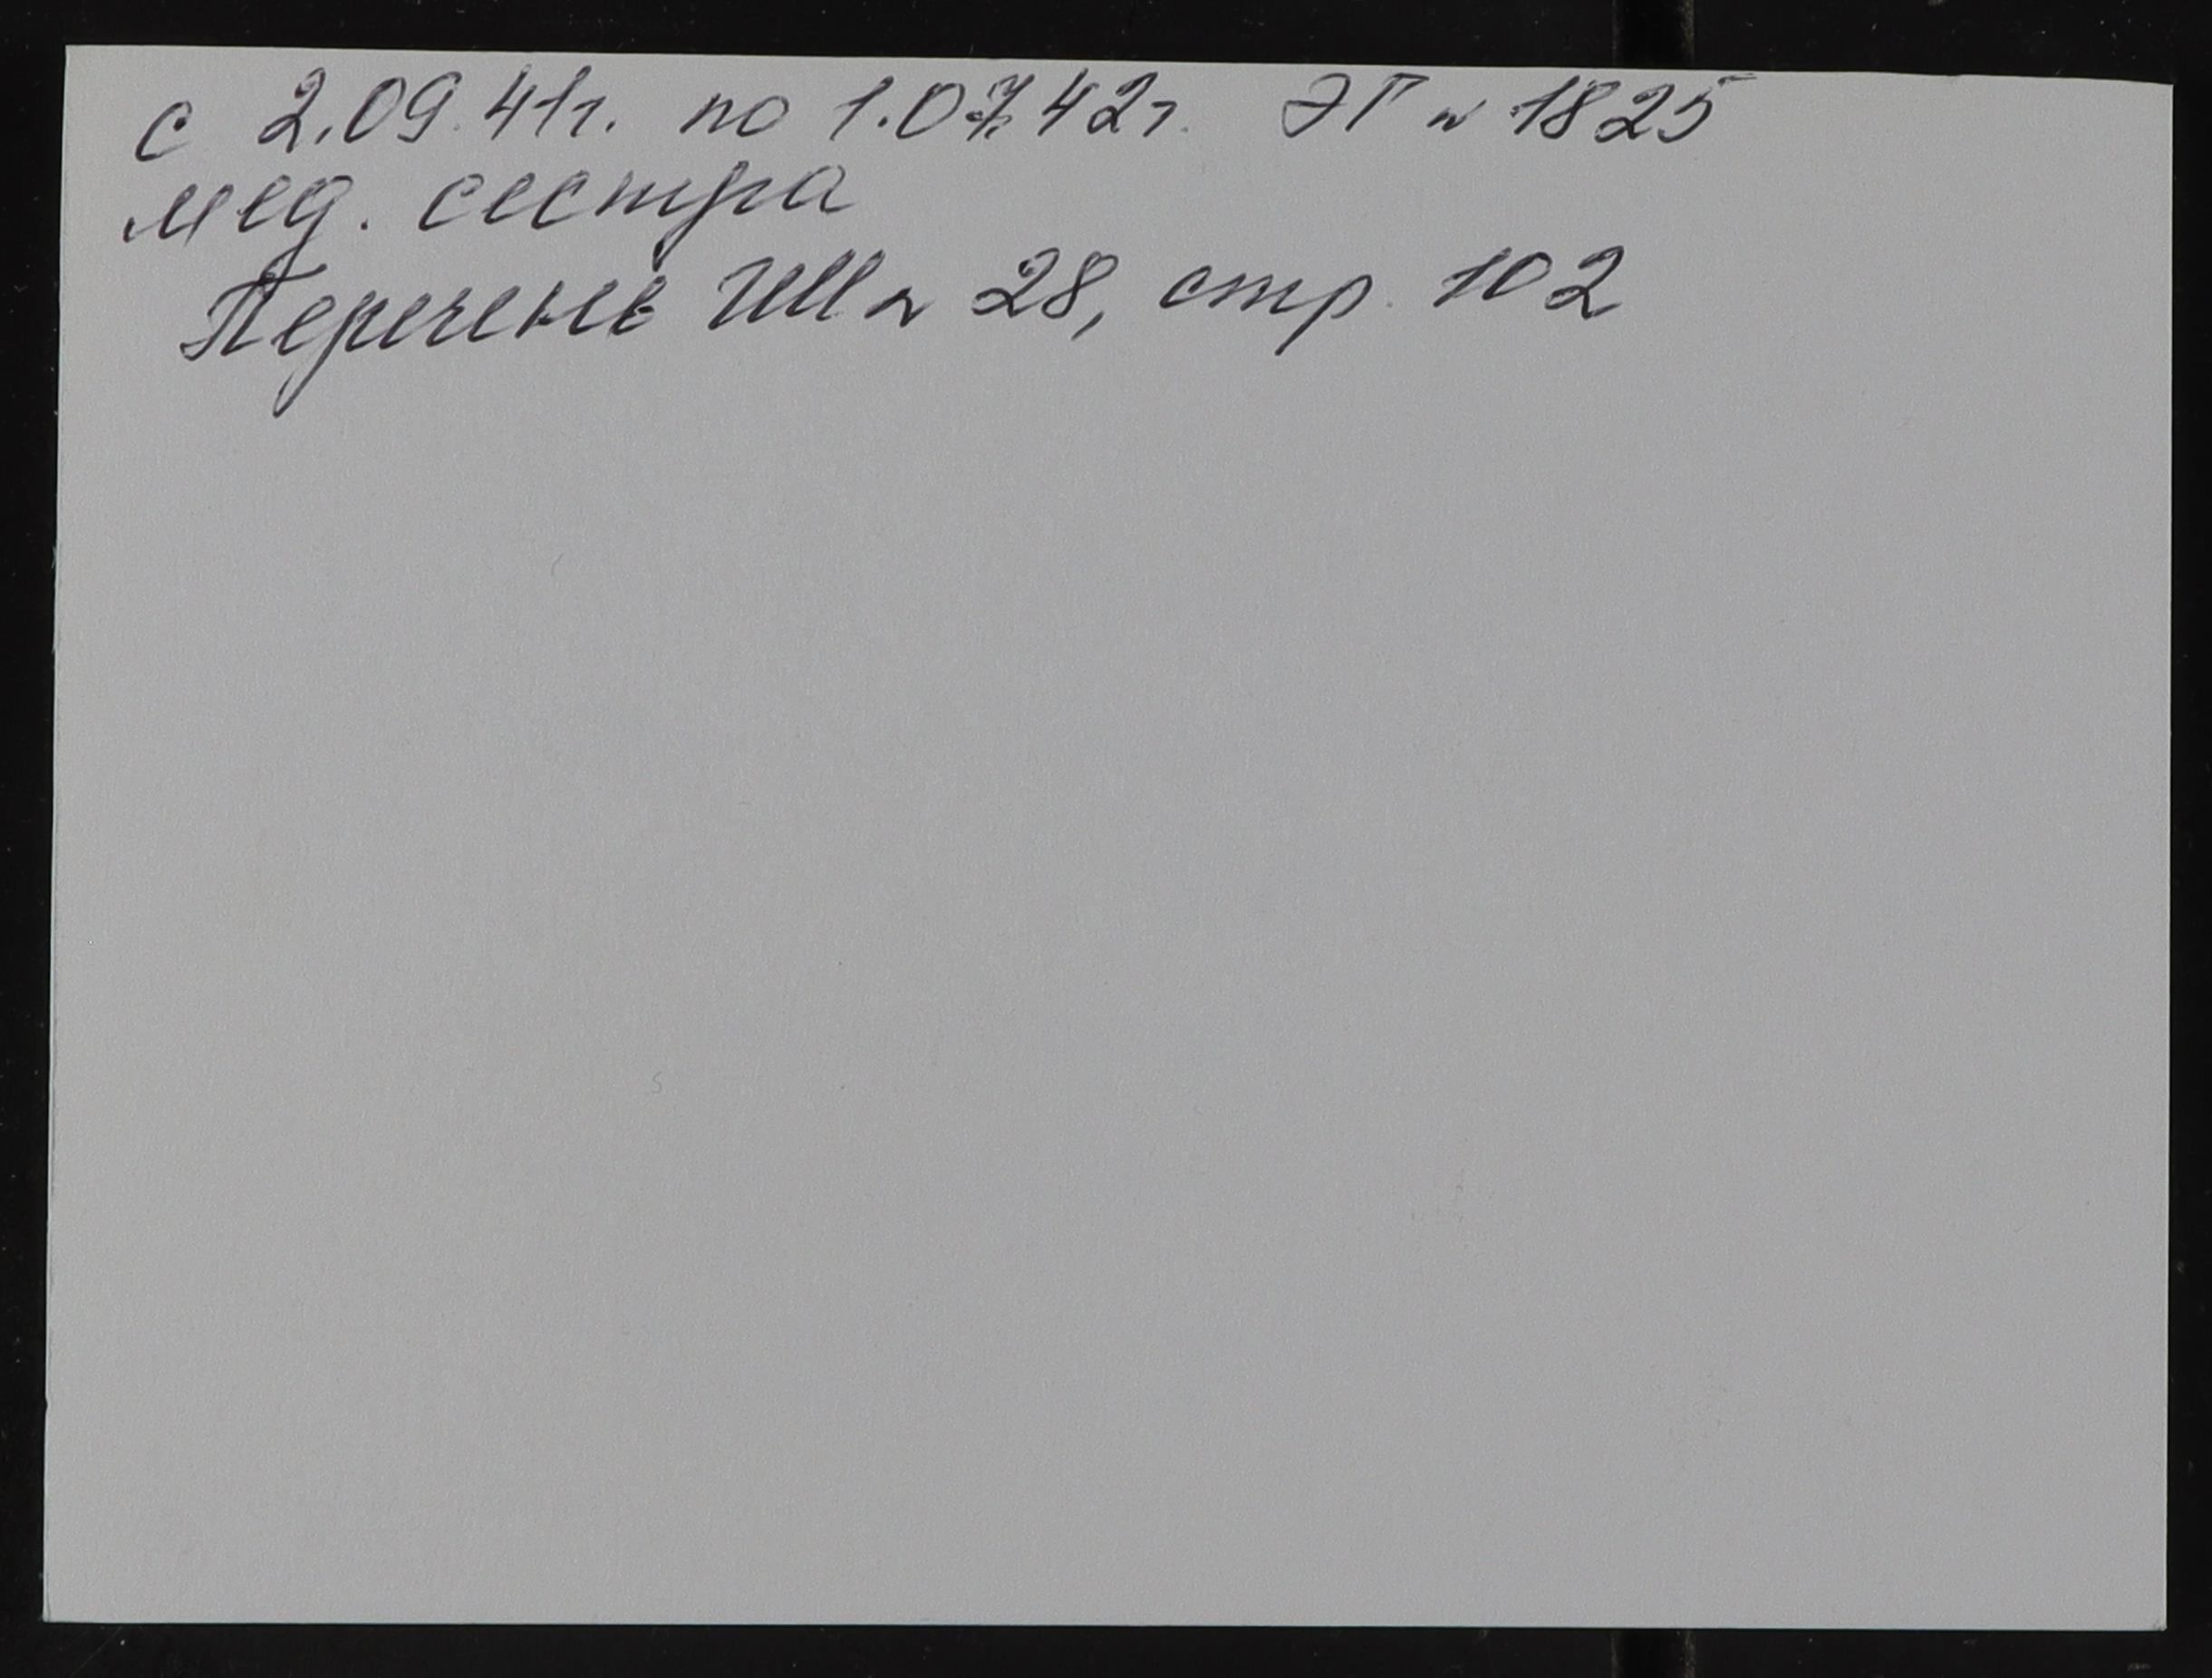 с 2.09.41г. по 1.07.42г. ЭГ № 1825
мед. сестра
Перечень ИМ № 28, стр. 102